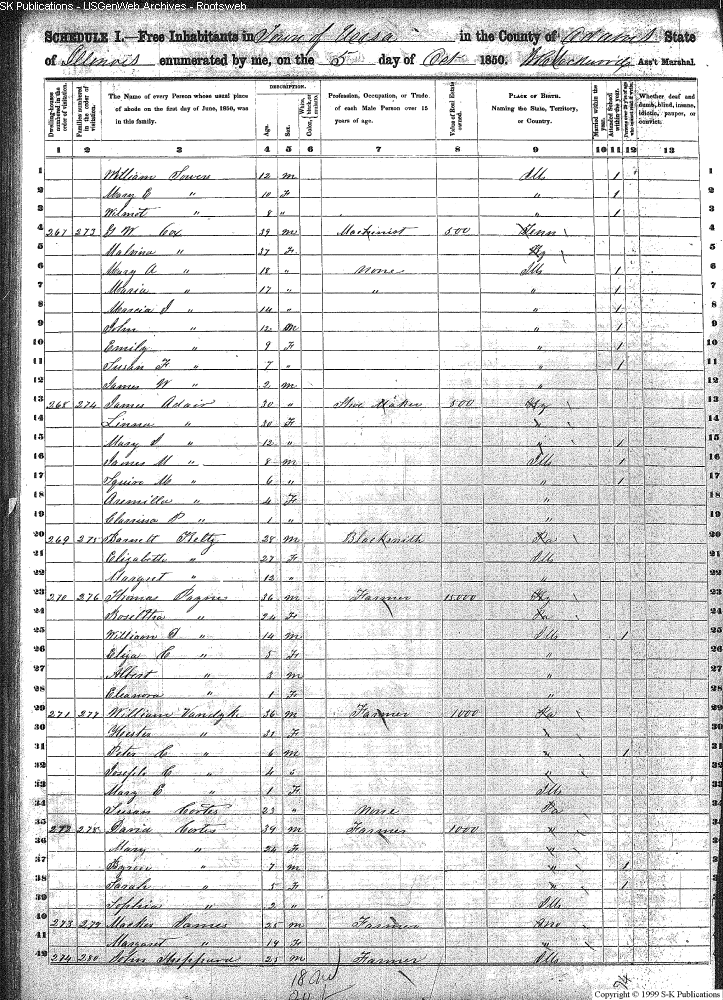 SK Publications - USGenWeb Archives - Rootsweb
SCHEDULE I.—Free Inhabitants in Town of Ursa in the County of Adams State
of Illinois enumerated by me, on the 5 day of Oct 1850. Ass't Marshal.
Dwelling-houses numbered in the order of visitation.
Families numbered in the order of visitation.
The Name of every Person whose usual place of abode on the first day of June, 1850, was in this family.
DESCRIPTION.
Age.
Sex.
Color, White, black, or mulatto.
Profession, Occupation, or Trade of each Male Person over 15 years of age.
Value of Real Estate owned.
PLACE OF BIRTH. Naming the State, Territory, or Country.
Married within the year.
Attended School within the year.
Persons over 20 y'rs of age who cannot read & write.
Whether deaf and dumb, blind, insane, idiotic, pauper, or convict.
1 2 3 4 5 6 7 8 9 10 11 12 13
1 William Towers 12 m Ills 1 1
2 Mary E " 10 F " 1 2
3 Wilmot " 8 " " 1 3
4 267 273 G W Cox 39 m Machinist 500 Tenn 4
5 Malvina " 37 F Ky 5
6 Mary A " 18 " None Ills 1 6
7 Maria " 17 " " " 1 7
8 Marcia J " 14 " " 1 8
9 John " 12 m " 1 9
10 Emily " 9 F " 1 10
11 Susan F " 7 " " 1 11
12 James W " 2 m " 12
13 268 274 James Adair 30 " Shoe Maker 500 Ky 13
14 " 30 F " 14
15 Mary J " 12 " " 1 15
16 James M " 8 m Ills 1 16
17 Squire M " 6 " " 1 17
18 Aremilla " 4 F " 18
19 P " 1 " " 19
20 269 275 Barnett Feltz 28 m Blacksmith 20
21 Elizabeth " 27 F Ills 21
22 Margret " 12 " " 22
23 270 276 Thomas Payne 36 m Farmer 15000 Ky 23
24 " 24 F 24
25 William T " 14 m Ills 1 25
26 Eliza C " 5 F " 26
27 Albert " 3 m " 27
28 Eleanora " 1 F " 28
29 271 277 William Vandyk 36 m Farmer 1000 29
30 Hester " 31 F " 30
31 Peter C " 6 m " 1 31
32 Joseph C " 4 " 32
33 Mary E " 1 F Ills 33
34 Susan Cortes 23 " None Pa 34
35 272 278 David Cortes 39 m Farmer 1000 " 35
36 Mary " 24 F " 36
37 Byron " 7 m " 1 37
38 Sarah " 5 F " 1 38
39 Sophia " 2 " Ills 39
40 273 279 James 25 m Farmer 40
41 Margaret " 19 F " 41
42 274 280 John Sheppard 25 m Farmer Ills 42
18
Copyright © 1999 S-K Publications